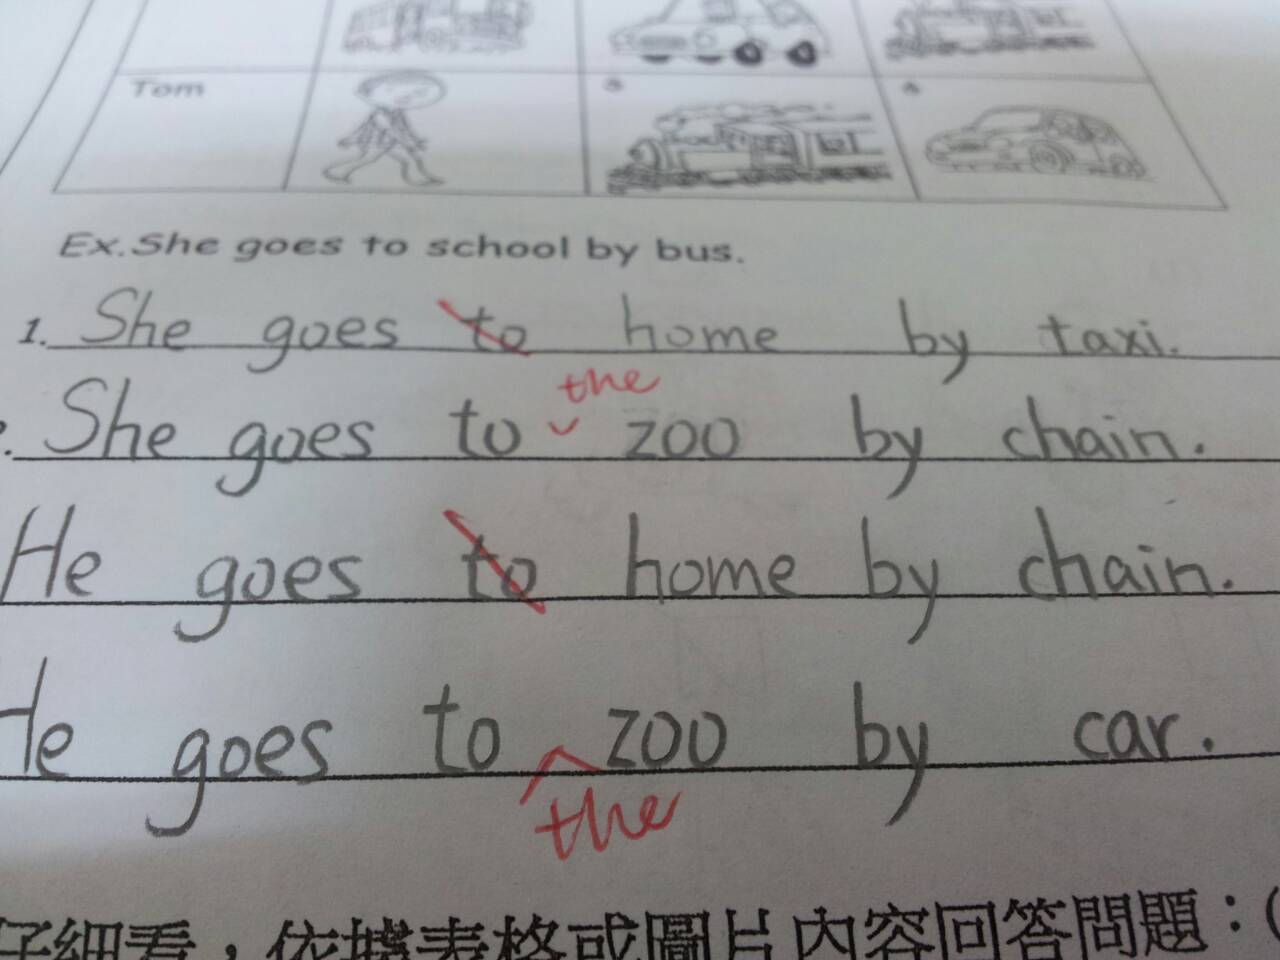 Tom 3 4
Ex.She goes to school by bus.
1. She goes to home by taxi.
the
She goes to zoo by chain.
He goes to home by chain.
He goes to zoo by car.
the
仔細看，依據表格或圖片內容回答問題：(